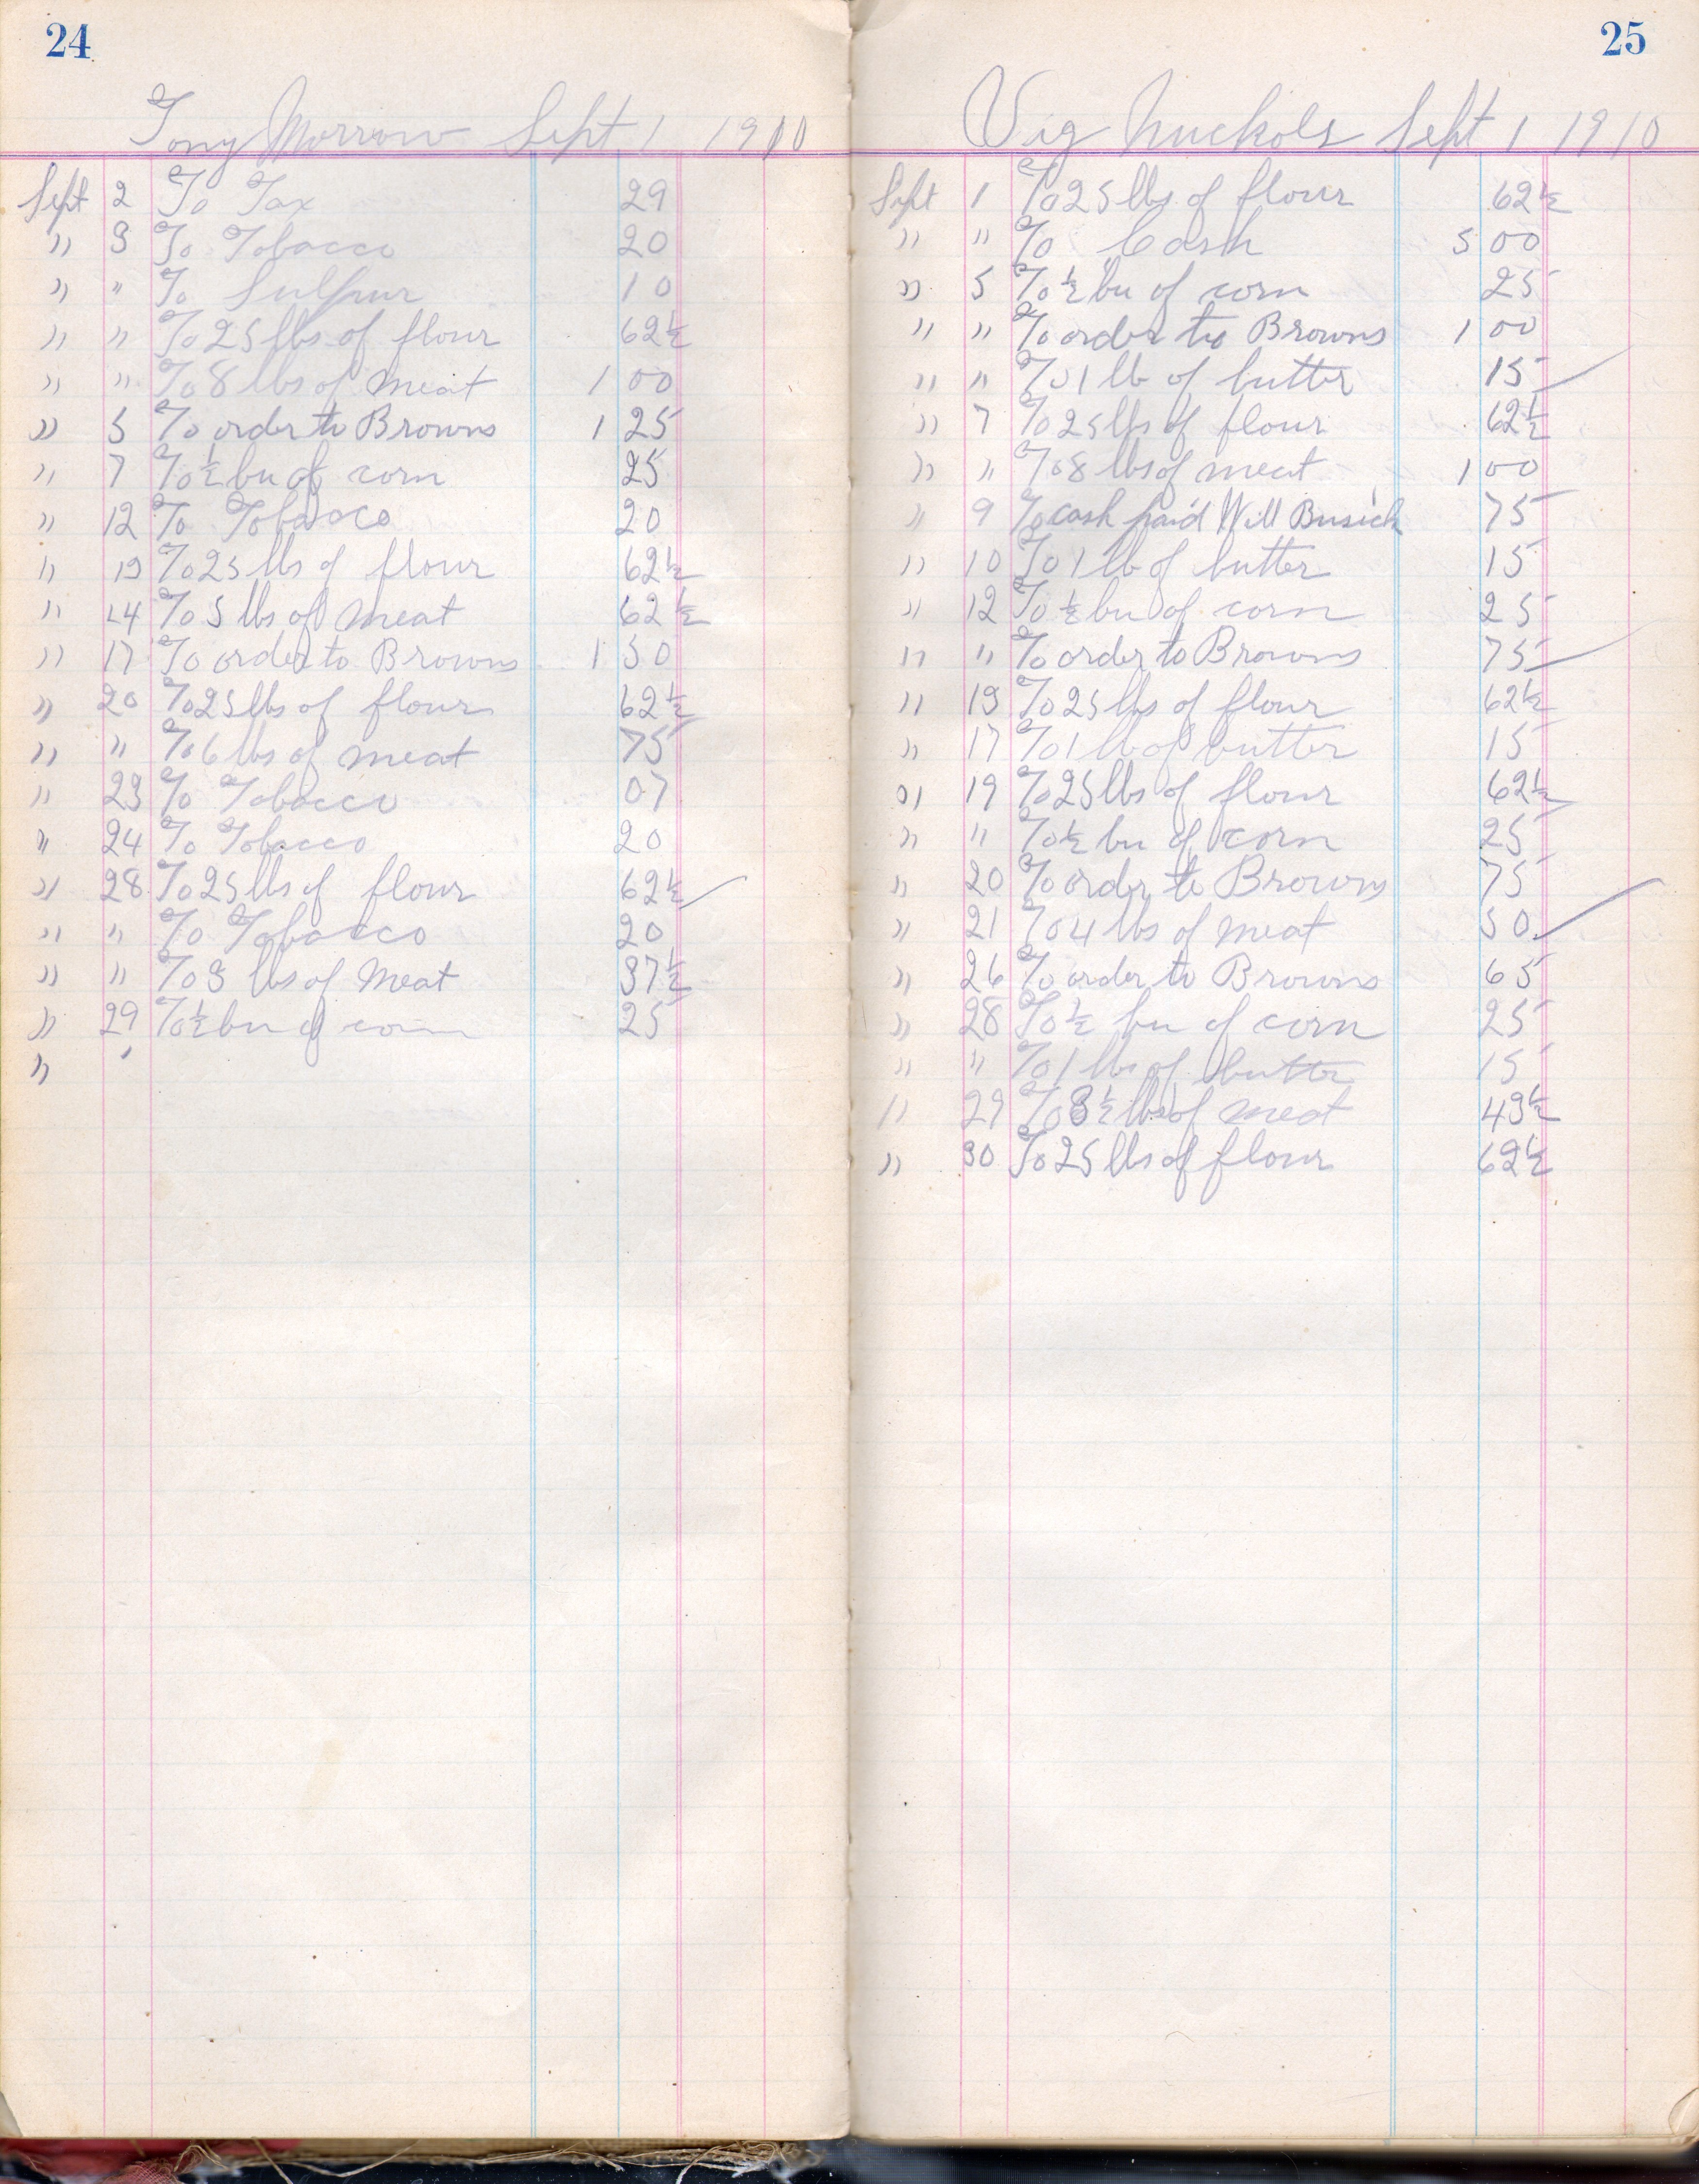 24
Tony Morrow Sept 1 1910
Sept 2 To Tax 29
" 3 To Tobacco 20
" " To Sulpur 10
" " To 25 lbs of flour 62½
" " To 8 lbs of meat 1 00
" 5 To order to Browns 1 25
" 7 To ½ bu of corn 25
" 12 To Tobacco 20
" 13 To 25 lbs of flour 62½
" 14 To 5 lbs of meat 62½
" 17 To order to Browns 1 50
" 20 To 25 lbs of flour 62½
" " To 6 lbs of meat 75
" 23 To Tobacco 07
" 24 To Tobacco 20
" 28 To 25 lbs of flour 62½
" " To Tobacco 20
" " To 3 lbs of Meat 37½
" 29 To ½ bu of corn 25
" '
25
Vig Nuckols Sept 1 1910
Sept 1 To 25 lbs of flour 62½
" " To Cash 5 00
" 5 To ½ bu of corn 25
" " To order to Browns 1 00
" " To 1 lb of butter 15
" 7 To 25 lbs of flour 62½
" " To 8 lbs of meat 1 00
" 9 To cash paid Will Busick 75
" 10 To 1 lb of butter 15
" 12 To ½ bu of corn 25
" " To order to Browns 75
" 13 To 25 lbs of flour 62½
" 17 To 1 lb of butter 15
" 19 To 25 lbs of flour 62½
" " To ½ bu of corn 25
" 20 To order to Browns 75
" 21 To 4 lbs of meat 50
" 26 To order to Browns 65
" 28 To ½ bu of corn 25
" " To 1 lbs of butter 15
" 29 To 3½ lbs of meat 43½
" 30 To 25 lbs of flour 62½